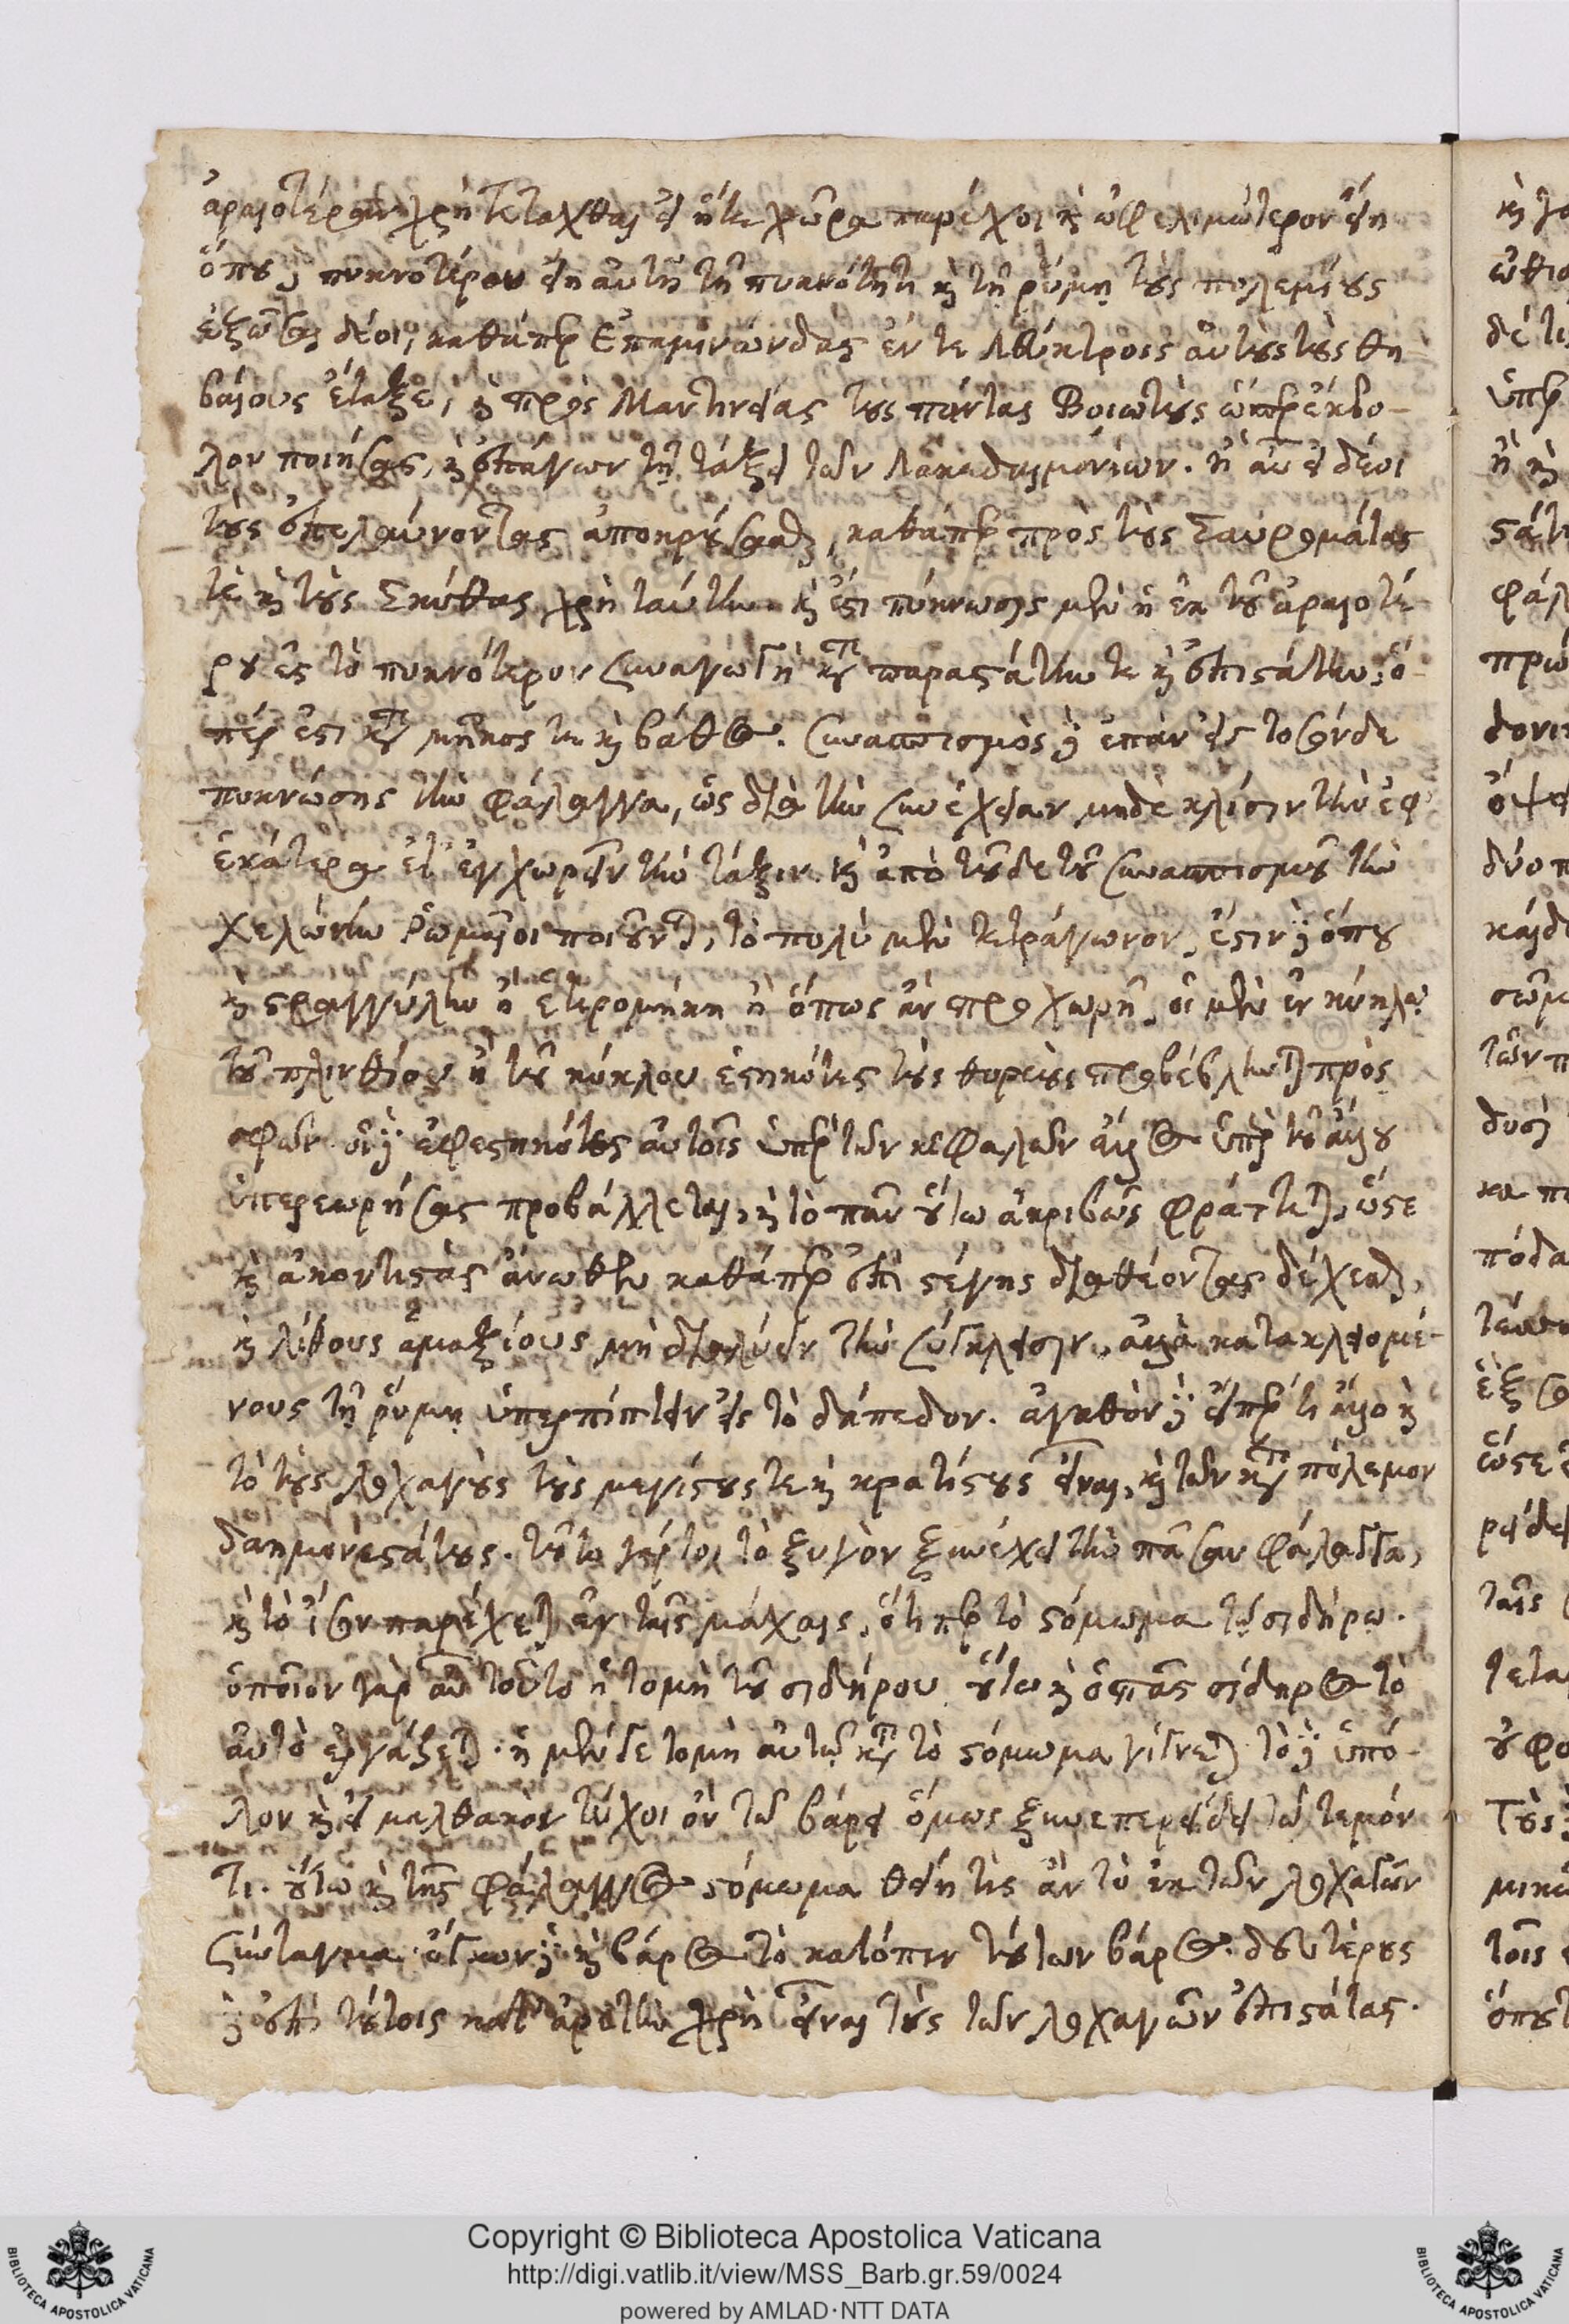 ἀραιοτέραν χρὴ τετάχθαι εἰ ἥτε χώρα παρέχοι καὶ ὠφελιμώτερον εἴη
ὅπου δὲ πυκνοτέραν εἴη αὐτῇ τῇ πυκνότητι καὶ τῇ ῥύμῃ τοὺς πολεμίους
ἐξῶσαι δέοι, καθάπερ Ἐπαμινώνδας ἔν τε Λεύκτροις αὐτοὺς τοὺς Θη-
βαίους ἔταξε, καὶ πρὸς Μαντινείας τοὺς πάντας Βοιωτοὺς ὥσπερ ἔμβο-
λον ποιήσας, καὶ ἐπάγων τῇ τάξει τῶν Λακεδαιμονίων. ἢ αὖ εἰ δέοι
τοὺς ἐπελαύνοντας ἀποκρούσασθαι, καθάπερ πρὸς τοὺς Σαυρομάτας
τὲ καὶ τοὺς Σκύθας χρὴ ταύτην. καὶ ἔστι πύκνωσις μὲν ἡ ἐκ τοῦ ἀραιοτέ-
ρου ἐς τὸ πυκνότερον συναγωγὴ κατὰ παραστάτην τε καὶ ἐπιστάτην, ὅ-
πέρ ἐστι κατὰ μῆκος τε καὶ βάθος. συνασπισμὸς δὲ ἐπὰν εἰς τοσόνδε
πυκνώσῃς τὴν φάλαγγα, ὡς διὰ τὴν συνέχειαν μηδὲ κλίσιν τὴν ἐφ'
ἑκάτερα ἔτ' ἐγχωρεῖν τὴν τάξιν. καὶ ἀπὸ τοῦδε τοῦ συνασπισμοῦ τὴν
χελώνην Ῥωμαῖοι ποιοῦνται, τὸ πολὺ μὲν τετράγωνον, ἔστιν δὲ ὅπου
καὶ στραγγύλην ἢ ἑτερομήκη ἢ ὅπως ἂν προχωρῇ. οἱ μὲν ἐν κύκλῳ
τοῦ πλινθίου ἢ τοῦ κύκλου ἑστηκότες τοὺς θυρεοὺς προβέβληνται πρὸς
σφῶν. οἱ δὲ ἐφεστηκότες αὐτοῖς ὑπὲρ τῶν κεφαλῶν ἄλλος ὑπὲρ τοῦ ἄλλου
ὑπερεωρήσας προβάλλεται, καὶ τὸ πᾶν οὕτω ἀκριβῶς φράττεται, ὥστε
καὶ ἀκοντιστὰς ἄνωθεν καθάπερ ἐπὶ στέγης διαθέοντας δέχεσθαι,
καὶ λίθους ἁμαξίους μὴ διαλύειν τὴν σύγκλεισιν, ἀλλὰ κατακλειομέ-
νους τῇ ῥύμῃ ὑπερπίπτειν εἰς τὸ δάπεδον. ἀγαθὸν δὲ εἴπερ τι ἄλλο καὶ
τὸ τοὺς λοχαγοὺς τοὺς μεγίστους τε καὶ κρατίστους εἶναι, καὶ τῶν κατὰ πόλεμον
δαημονεστάτους. τοῦτο γάρ τοι τὸ ζυγὸν ξυνέχει τὴν πᾶσαν φάλαγγα,
καὶ τὸ ἴσον παρέχεται ἐν ταῖς μάχαις, ὅτι περ τὸ στόμωμα τῷ σιδήρῳ.
ὁποῖον γὰρ ἂν τοῦτο ἡ τομὴ τοῦ σιδήρου, οὕτω καὶ ὁ πᾶς σίδηρος τὸ
αὐτὸ ἐργάζεται. ἡ μὲν δὲ τομὴ αὐτῷ κατὰ τὸ στόμωμα γίγνεται. τὸ δὲ ὑπό-
λον καὶ εἰ μαλθακὸν τύχοι ὂν τῷ βάρει ὅμως ξυνεπερείδει τῷ τέμνον-
τι. οὕτω καὶ τῆς φάλαγγος στόμωμα θείη τὶς ἂν τὸ ἐκ τῶν λοχαγῶν
σύνταγμα. ὄγκον δὲ καὶ βάρος τὸ κατόπιν τούτων βάρος. δευτέρους
δὲ ἐπὶ τούτοις κατ' ἀρετὴν χρὴ εἶναι τοὺς τῶν λοχαγῶν ἐπιστάτας.
Copyright © Biblioteca Apostolica Vaticana
http://digi.vatlib.it/view/MSS_Barb.gr.59/0024
powered by AMLAD·NTT DATA
BIBLIOTECA APOSTOLICA VATICANA
BIBLIOTECA APOSTOLICA VATICANA